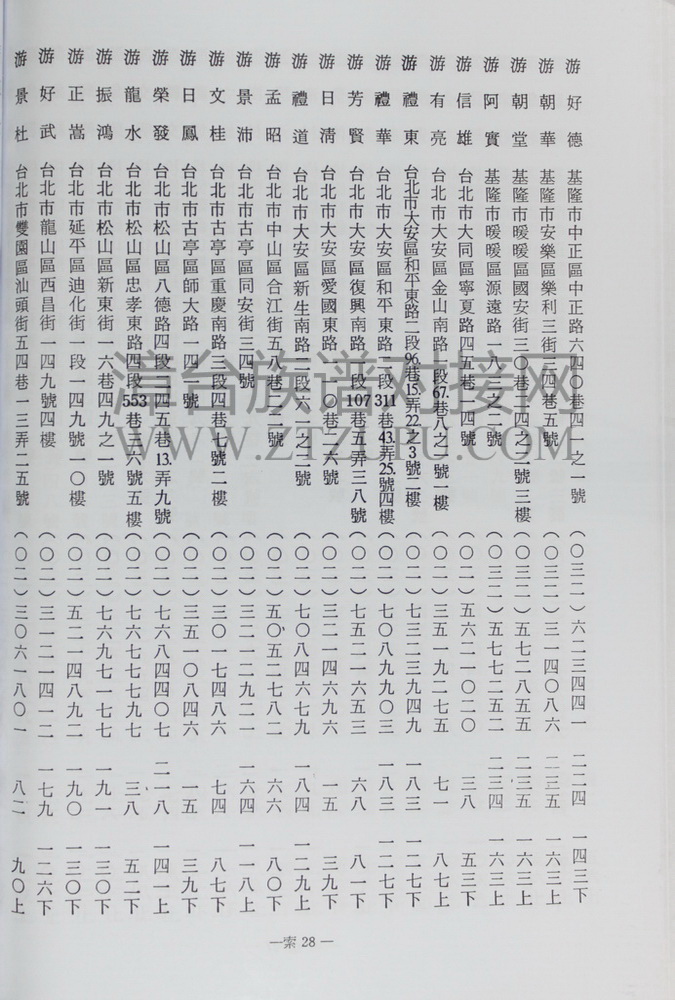 游好德 基隆市中正區中正路六四〇巷四一之一號 (〇三二)六二三四四一 二二四 一四三下
游朝華 基隆市安樂區樂利三街三四巷五號 (〇三二)三一四〇八六 二三五 一六三上
游朝堂 基隆市暖暖區國安街三〇巷二四之二號三樓 (〇三二)五七二八五五 二三五 一六三上
游阿實 基隆市暖暖區源遠路一八三之二號 (〇三二)五七七二五二 二三四 一六三上
游信雄 台北市大同區寧夏路四五巷一四號 (〇二)五六二一〇二〇 三八 五三下
游有亮 台北市大安區金山南路一段67.巷八之二號一樓 (〇二)三五一九二七五 七一 八七上
游禮東 台北市大安區和平東路二段96.巷15.弄22.之3號二樓 (〇二)七三二三九四九 一八三 一二七下
游禮華 台北市大安區和平東路二段311巷43.弄25.號四樓 (〇二)七〇八九九〇三 一八三 一二七下
游芳賢 台北市大安區復興南路一段107巷五弄三八號 (〇二)七五二一六五三 六八 八一下
游日清 台北市大安區愛國東路一一〇巷二六號 (〇二)三二一四六九六 一五 三九下
游禮道 台北市大安區新生南路一段六一之二號 (〇二)七〇八四六七九 一八四 一二九上
游孟昭 台北市中山區合江街五八巷二二號 (〇二)五〇五二七八二 六六 八〇下
游景沛 台北市古亭區同安街三四號 (〇二)三二一二九二一 一六四 一一八上
游文桂 台北市古亭區重慶南路三段四巷七號二樓 (〇二)三〇一七四八六 七四 八七下
游日鳳 台北市古亭區師大路一四一號 (〇二)三五一〇八四六 一五 三九下
游榮發 台北市松山區八德路四段二四五巷13.弄九號 (〇二)七六八四四〇七 二一八 一四一上
游龍水 台北市松山區忠孝東路四段553巷三六號五樓 (〇二)七六七八四九七 三八 五二下
游振鴻 台北市松山區新東街一六巷四九之一號 (〇二)七六九七一七七 一九一 一三〇下
游正嵩 台北市延平區迪化街一段一四九號一〇樓 (〇二)五二一四八九二 一九〇 一三〇下
游好武 台北市龍山區西昌街一四九號四樓 (〇二)三一二一四一二 一七九 一二六下
游景杜 台北市雙園區汕頭街五四巷一三弄二五號 (〇二)三〇六一八〇一 八二 九〇上
漳台族谱对接网
WWW.ZTZUPU.COM
—索 28—